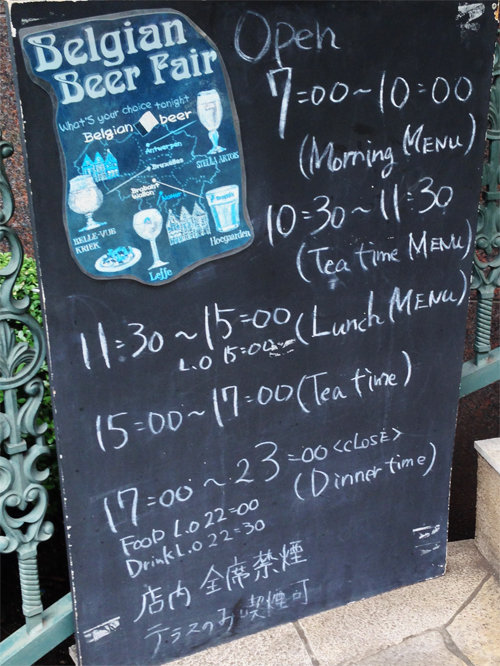 Belgian
Beer Fair
What's your choice tonight
Belgian beer
Antwerpen
Bruxelles
Brabant
Wallon
Namur
STELLA ARTOIS
BELLE-VUE
KRIEK
Leffe
Hoegaarden
Open
7:00~10:00
(Morning MENU)
10:30~11:30
(Tea time MENU)
11:30~15:00 (Lunch MENU)
L.O 15:00
15:00~17:00 (Tea time)
17:00~23:00 <CLOSE>
(Dinner time)
Food L.O 22:00
Drink L.O 22:30
店内 全席禁煙
テラスのみ喫煙可